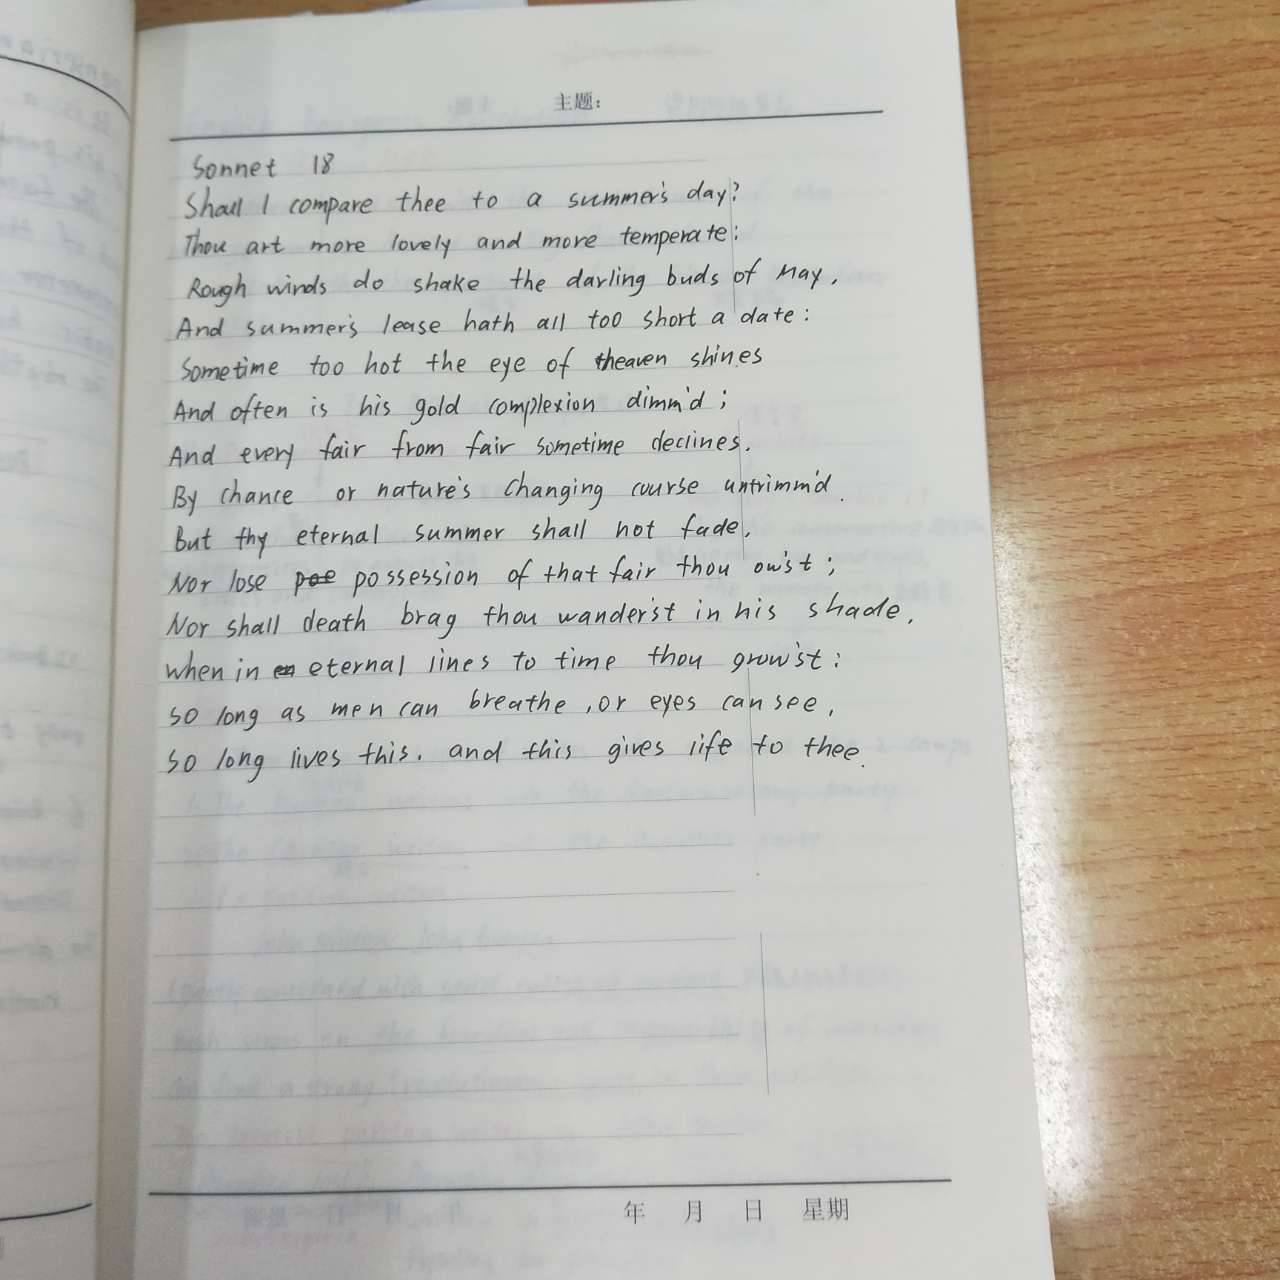 主题:
Sonnet 18
Shall I compare thee to a summer's day?
Thou art more lovely and more temperate:
Rough winds do shake the darling buds of May,
And summer's lease hath all too short a date:
Sometime too hot the eye of heaven shines
And often is his gold complexion dimm'd;
And every fair from fair sometime declines.
By chance or nature's changing course untrimm'd.
But thy eternal summer shall not fade,
Nor lose possession of that fair thou ow'st;
Nor shall death brag thou wander'st in his shade,
when in eternal lines to time thou grow'st:
so long as men can breathe, or eyes can see,
so long lives this. and this gives life to thee.
年 月 日 星期